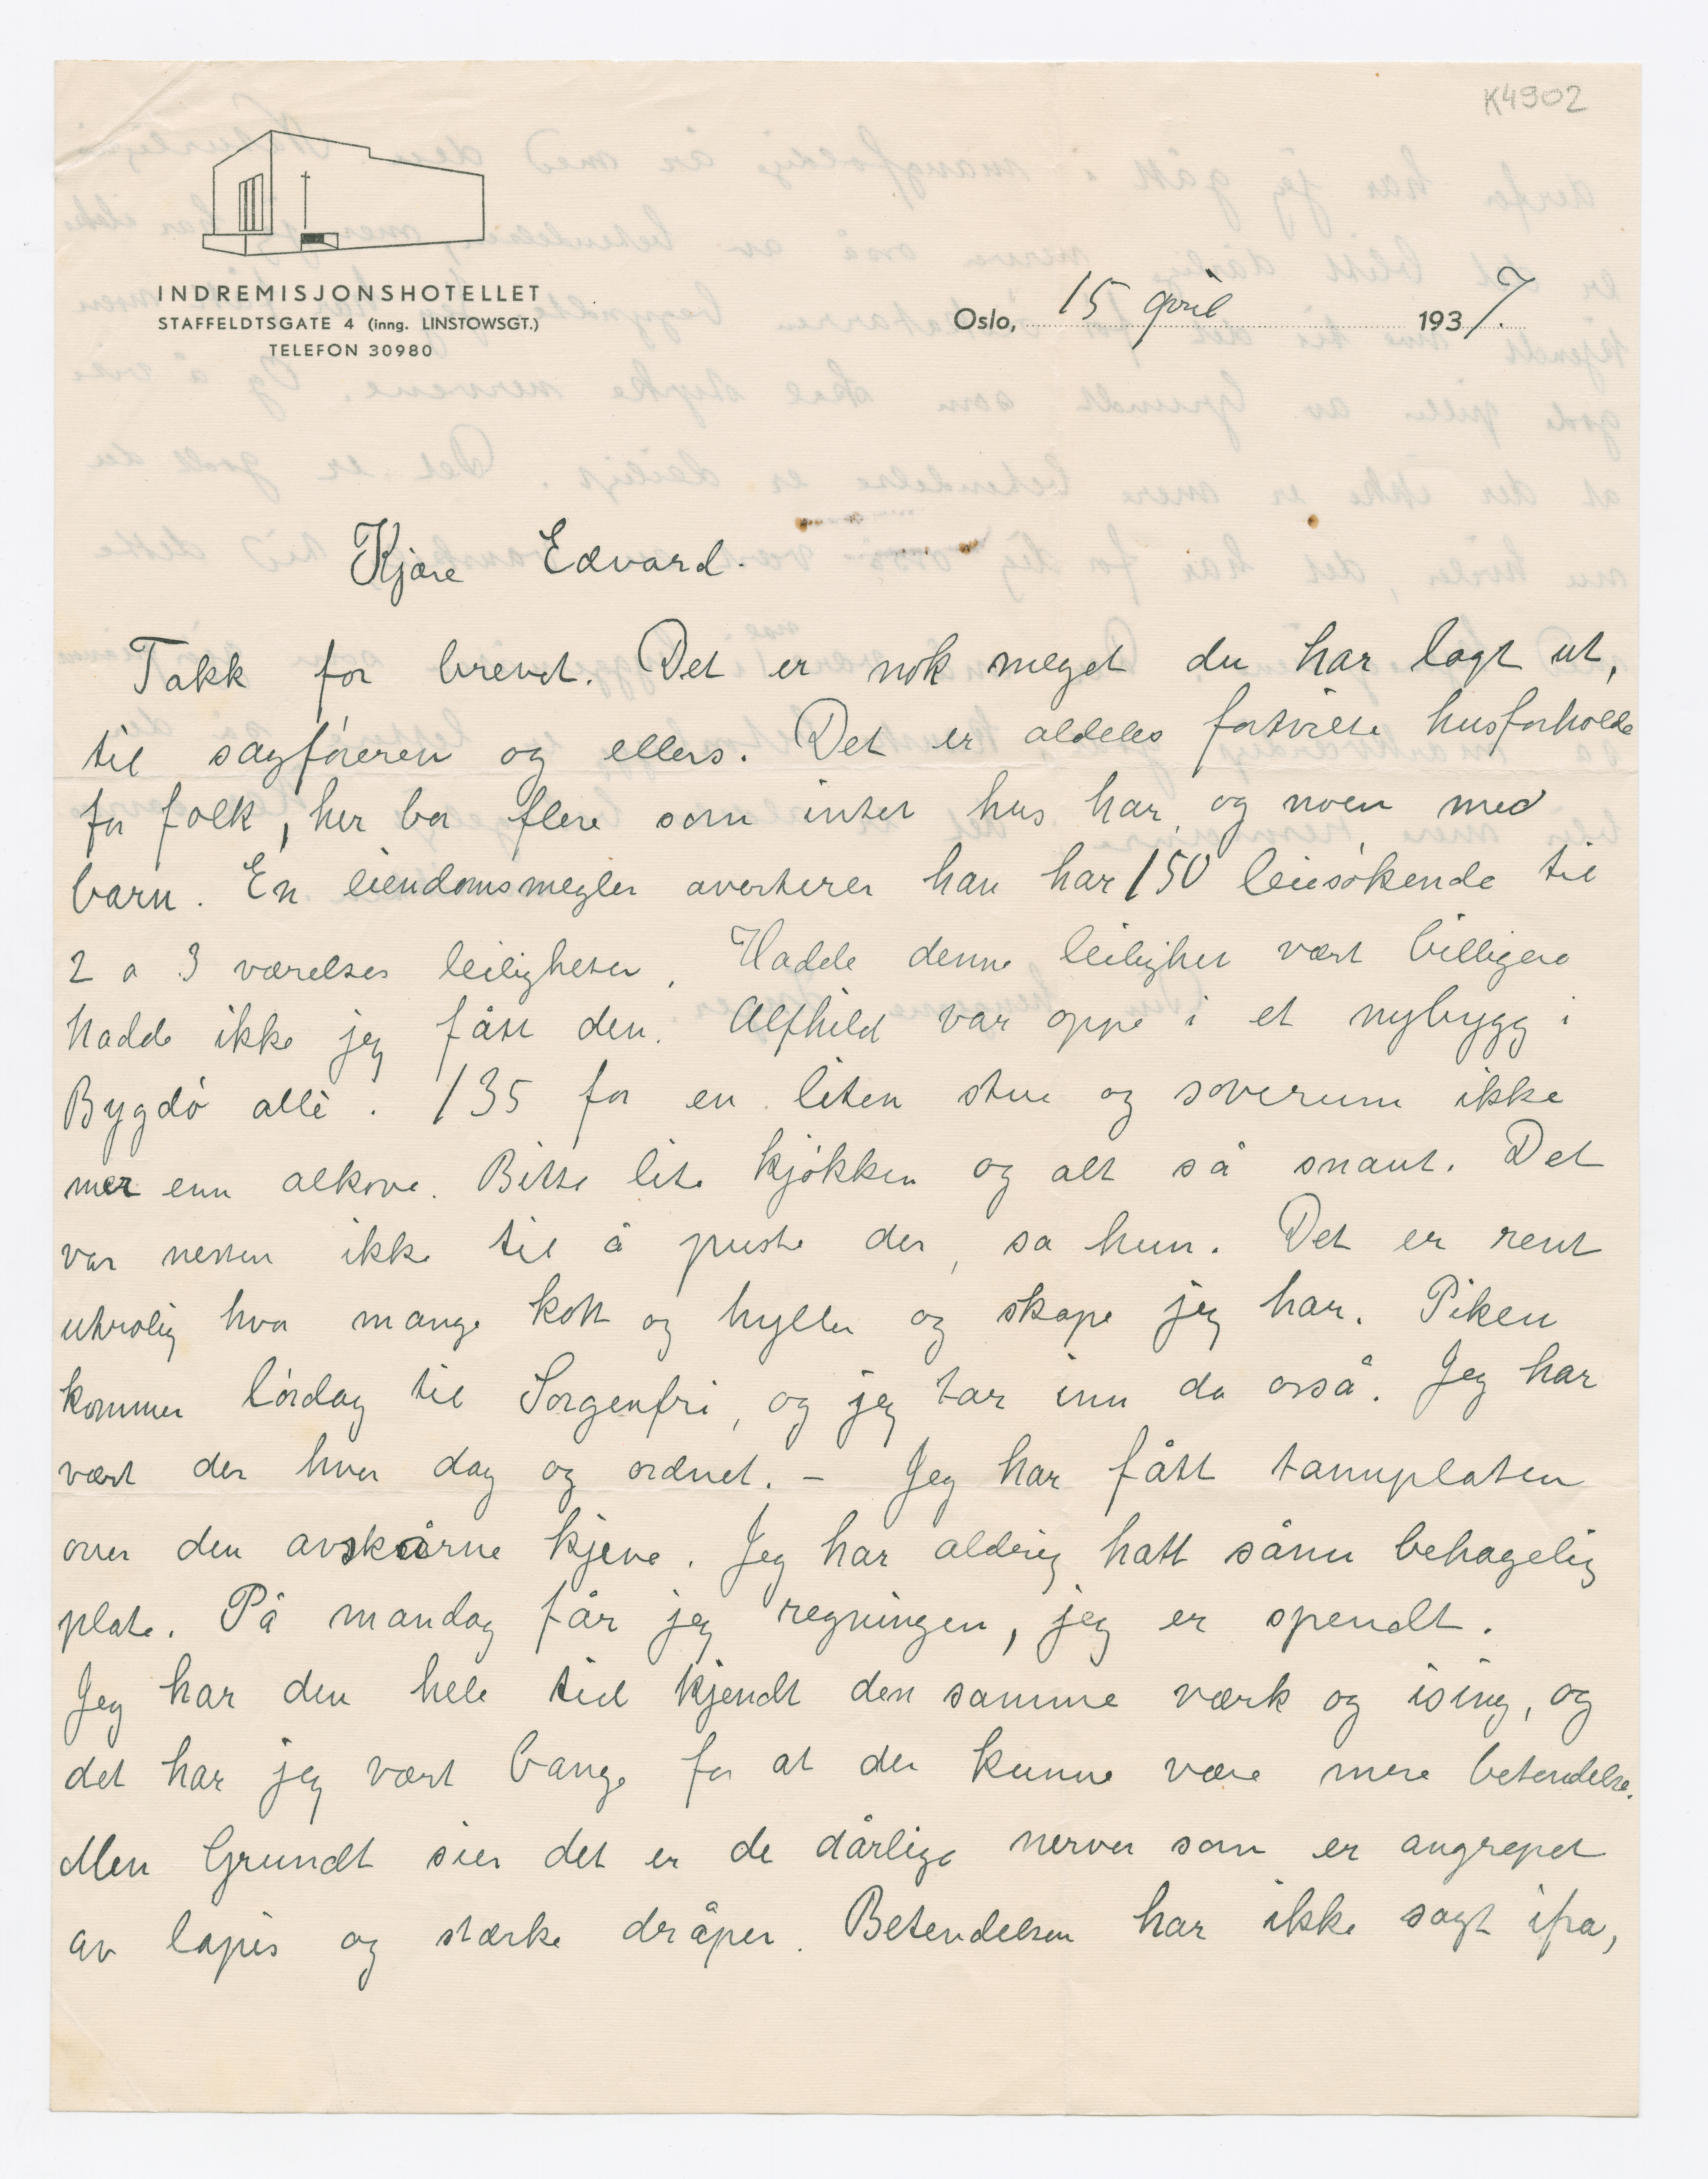 K4902
INDREMISJONSHOTELLET
STAFFELDTSGATE 4 (inng. LINSTOWSGT.)
TELEFON 30980
Oslo, 15 april 1937.
Kjære Edvard.
Takk for brevet. Det er nok meget du har lagt ut,
til sagføreren og ellers. Det er aldeles fortvilte husforholde
for folk, her bor flere som intet hus har og noen med
barn. En eiendomsmegler averterer han har 150 leiesøkende til
2 a 3 værelses leiligheter. Hadde denne leilighet vært billigere
hadde ikke jeg fått den. Alfhild var oppe i et nybygg i
Bygdø allè. 135 for en liten stue og soverum ikke
mer enn alkove. Bitte lite kjøkken og alt så snaut. Det
var nesten ikke til å puste der, sa hun. Det er rent
utrolig hva mange kott og hyller og skape jeg har. Piken
kommer lørdag til Sorgenfri, og jeg tar inn da også. Jeg har
vært der hver dag og ordnet. – Jeg har fått tannplaten
over den avskårne kjeve. Jeg har aldrig hatt sånn behagelig
plate. På mandag får jeg regningen, jeg er spendt.
Jeg har den hele tid kjendt den samme værk og ising, og
det har jeg vært bange for at der kunne være mere betendelse.
Men Grundt sier det er de dårlige nerver som er angrepet
av lapis og stærke dråper. Betendelsen har ikke sagt ifra,